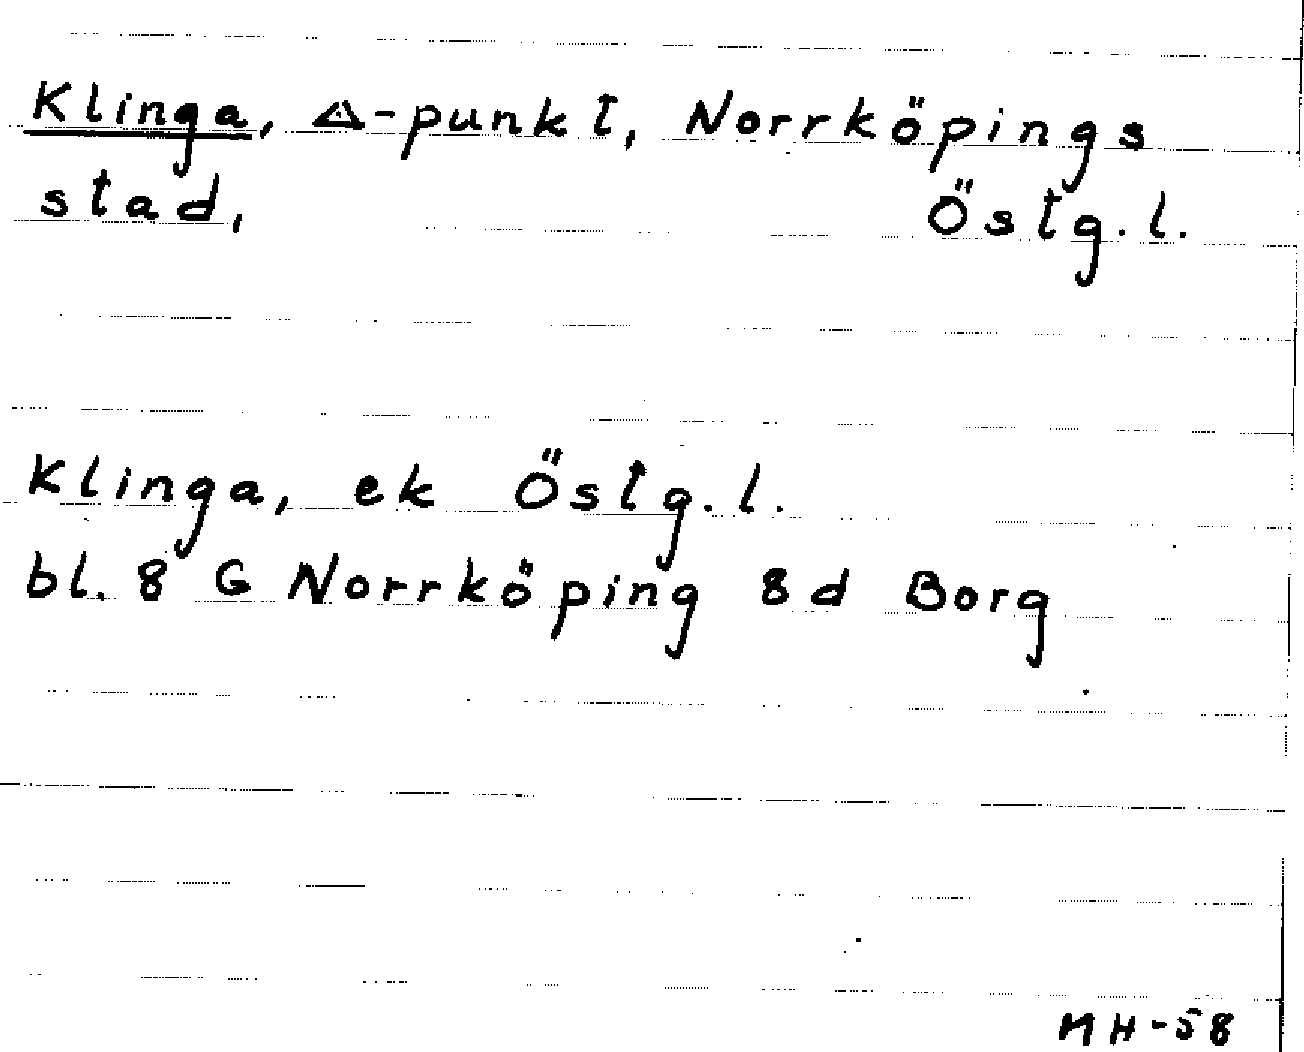 Klinga, △-punkt, Norrköpings
stad, Östg. l.
Klinga, ek Östg. l.
bl. 8 G Norrköping 8d Borg
MH-58